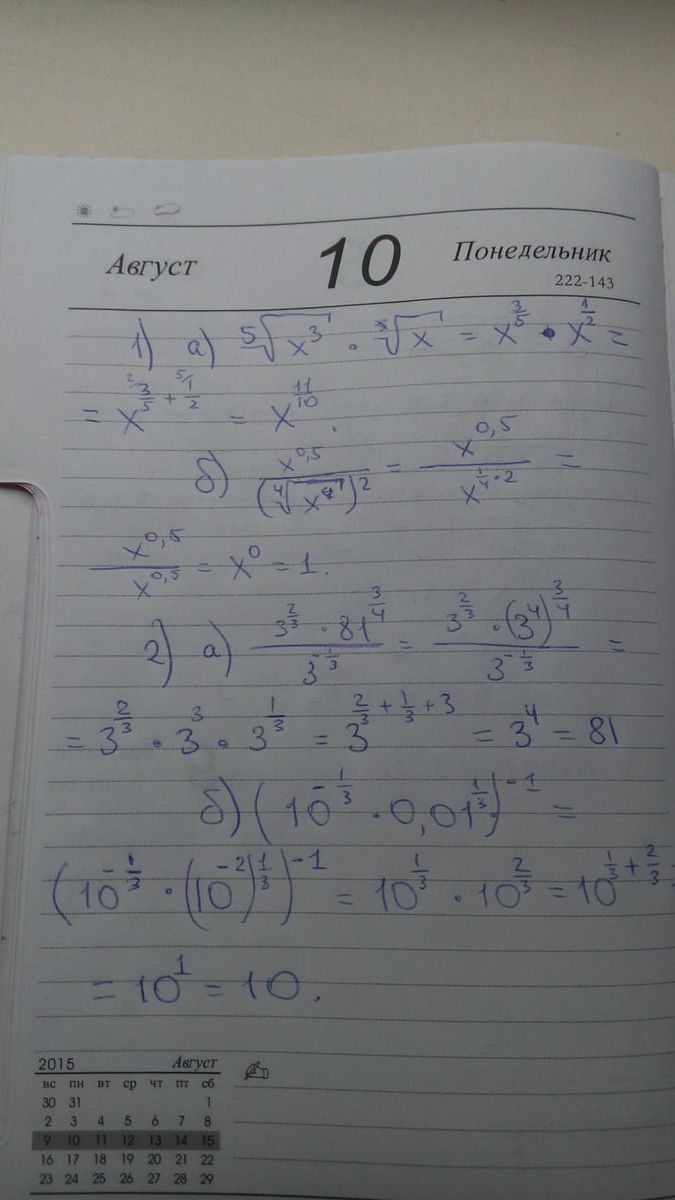 Август 10 Понедельник
222-143
1) а) ⁵√x³ · √x = x^(3/5) · x^(1/2) =
= x^(3/5 + 1/2) = x^(11/10).
б) x^0,5 / (⁴√x)^2 = x^0,5 / x^(1/4 · 2) =
x^0,5 / x^0,5 = x^0 = 1.
2) а) 3^(2/3) · 81^(3/4) / 3^(-1/3) = 3^(2/3) · (3^4)^(3/4) / 3^(-1/3) =
= 3^(2/3) · 3^3 · 3^(1/3) = 3^(2/3 + 1/3 + 3) = 3^4 = 81
б) (10^(-1/3) · 0,01^(1/3))^-1 =
(10^(-1/3) · (10^-2)^(1/3))^-1 = 10^(1/3) · 10^(2/3) = 10^(1/3 + 2/3) =
= 10^1 = 10.
2015 Август
вс пн вт ср чт пт сб
30 31 1
2 3 4 5 6 7 8
9 10 11 12 13 14 15
16 17 18 19 20 21 22
23 24 25 26 27 28 29